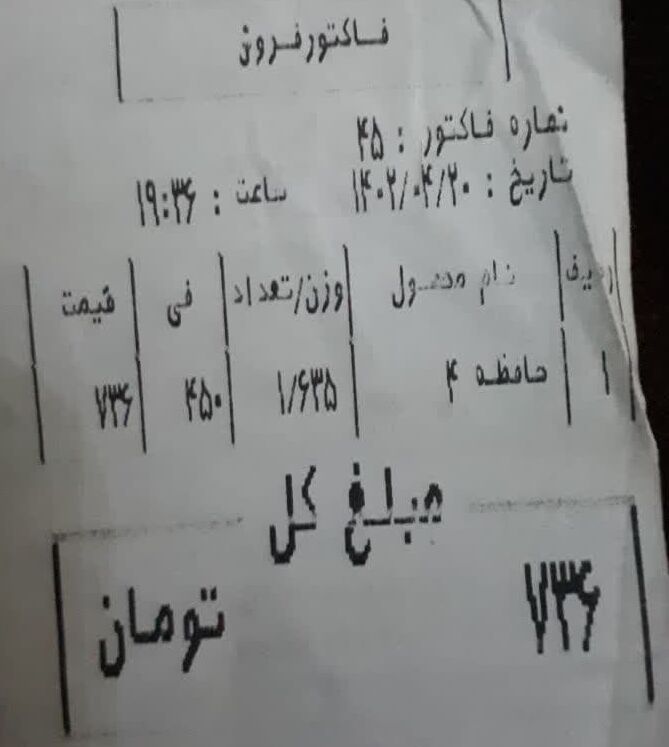 فاکتور فروش
شماره فاکتور : ۴۵
تاریخ : ۱۴۰۲/۰۴/۲۰ ساعت : ۱۹:۳۶
ردیف نام محصول وزن/تعداد فی قیمت
۱ حافظه ۴ ۱/۶۳۵ ۴۵۰ ۷۳۶
مبلغ کل
۷۳۶ تومان